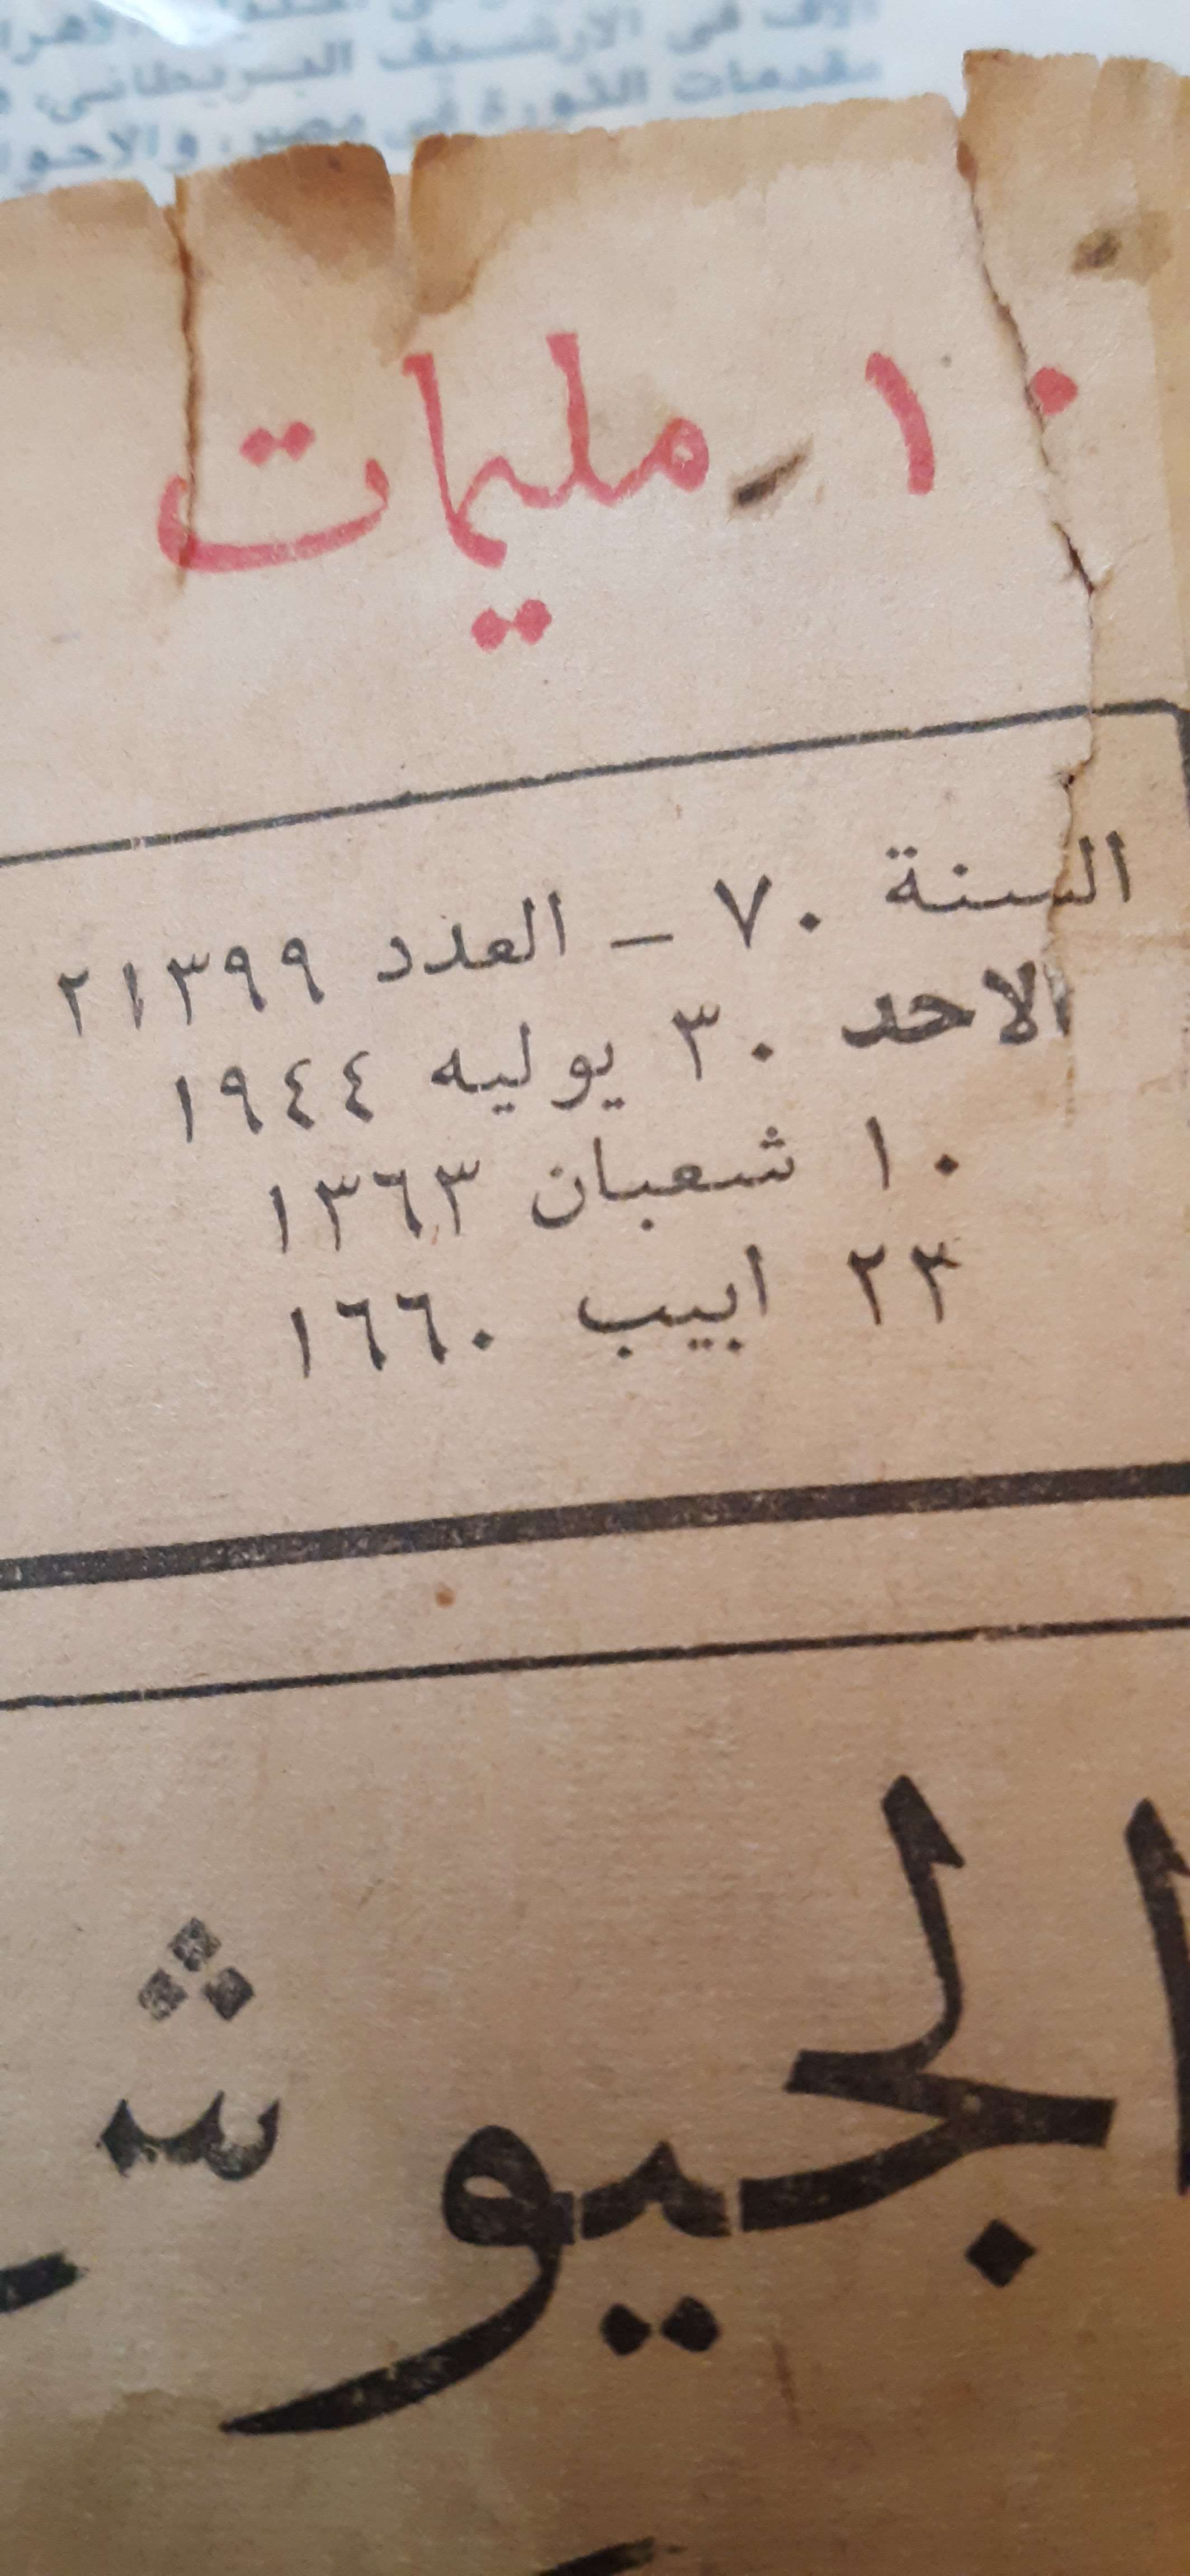 الارشيف البريطاني
مقدمات الثورة في مصر، والاحوا
١٠ مليمات
السنة ٧٠ - العدد ٢١٣٩٩
الاحد ٣٠ يوليه ١٩٤٤
١٠ شعبان ١٣٦٣
٢٣ ابيب ١٦٦٠
الجيوش